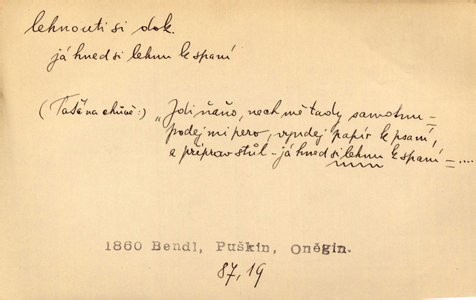 lehnouti si dok.
já hned si lehnu ke spaní
(Táně na chůvě:) „Jdi ňaňo, nech mě tady samotnu =
podej mi pero, vyndej papír ke psaní,
a příprav stůl - já hned si lehnu ke spaní = ....
1860 Bendl, Puškin, Oněgin.
87, 19